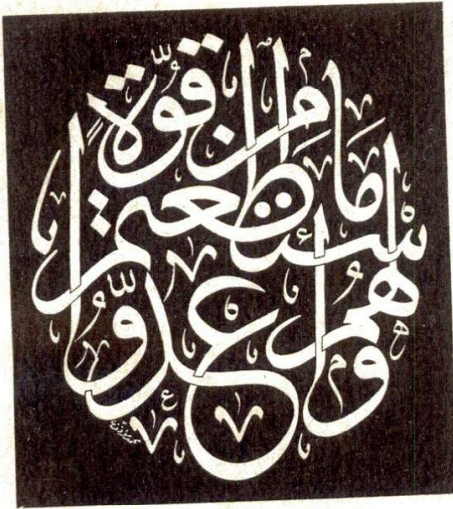 وأعدوا لهم ما استطعتم من قوة